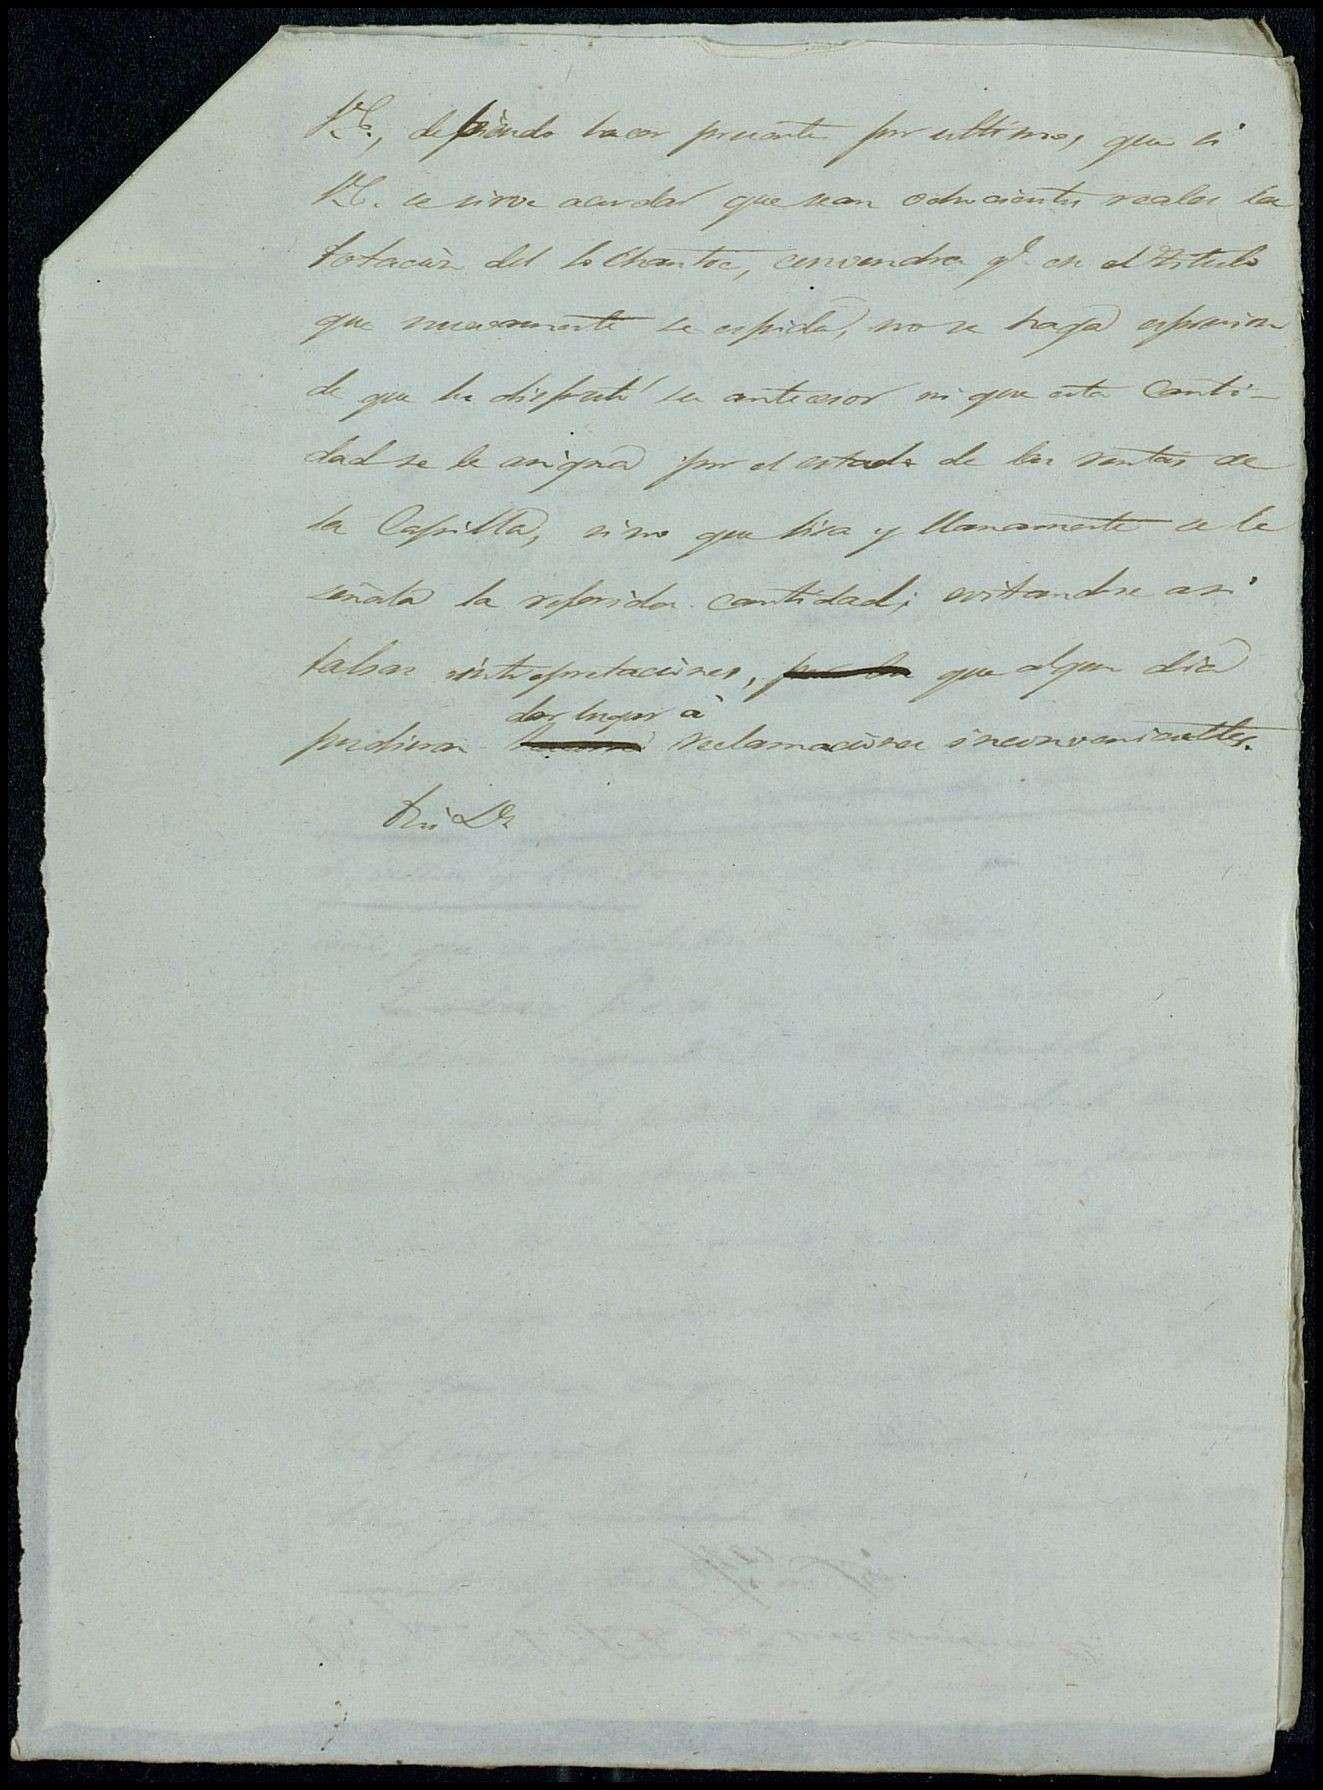 V.E., debiendo hacer presente por ultimo, que si
V.E. se sirve acordar que sean ochocientos reales la
dotacion del Sochantre, convendra qe. en el titulo
que nuevamente se espida, no se haga espresion
de que la disfrutó su antecesor ni que esta canti-
dad se le asigna por el estado de las rentas de
la Capilla, sino que lisa y llanamente se le
señala la referida cantidad; evitandose asi
falsas interpretaciones, que algun dia
dar lugar à
pudieran reclamaciones inconvenientes.